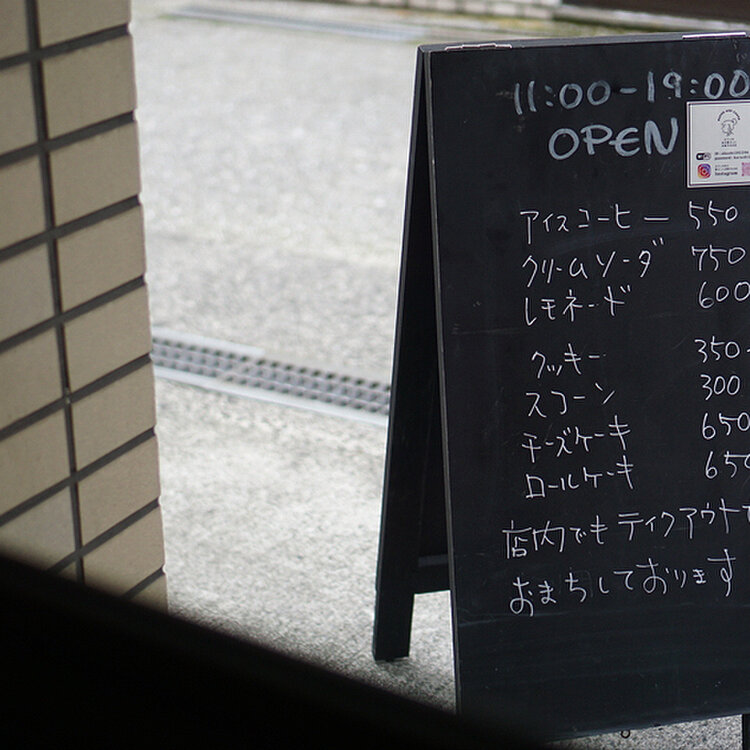 11:00-19:00
OPEN
Instagram
アイスコーヒー 550
クリームソーダ 750
レモネード 600
クッキー 350
スコーン 300
チーズケーキ 650
ロールケーキ 650
店内でもテイクアウト
おまちしております